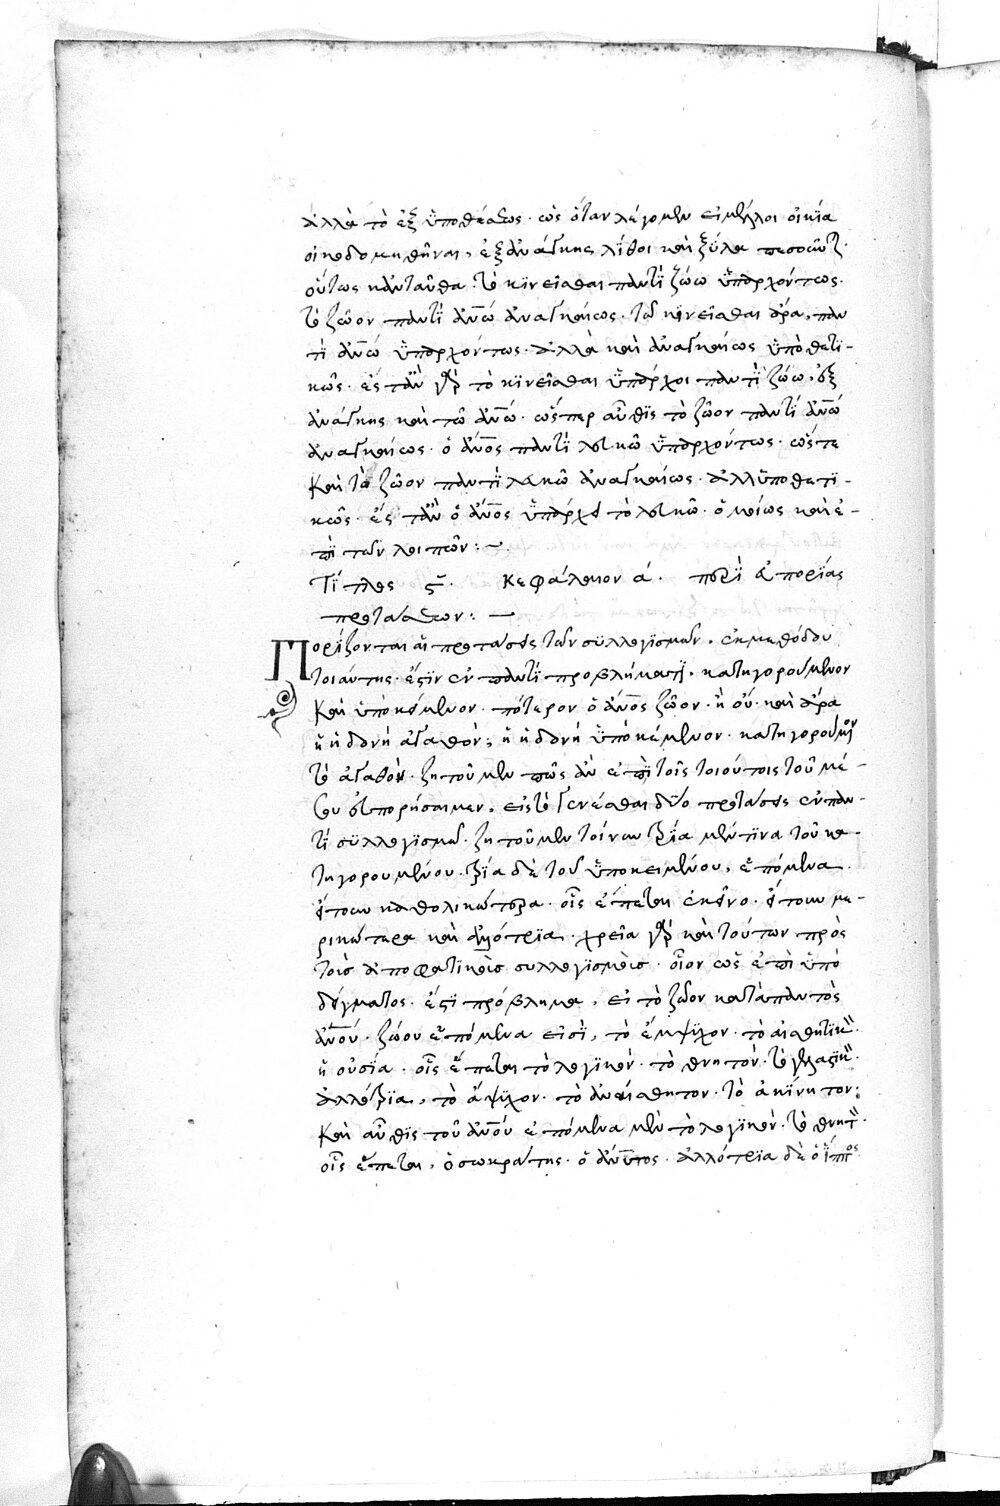 ἀλλὰ τὸ ἐξ ὑποθέσεως· ὡς ὅταν λέγομεν εἰ μέλλοι οἰκία
οἰκοδομηθῆναι, ἐξ ἀνάγκης λίθοι καὶ ξύλα πεσοῦντ
οὕτως κἀνταῦθα· τὸ κινεῖσθαι παντὶ ζώω ὑπαρχόντως·
τὸ ζῶον παντὶ ἀνω ἀναγκαίως· τὸ κινεῖσθαι ἄρα, παν
τὶ ἀνω ὑπαρχόντως· ἀλλὰ καὶ ἀναγκαίως ὑποθετι-
κῶς· ἔς τἂν γὰρ τὸ κινεῖσθαι ὑπάρχοι παντὶ ζώω, ἐξ
ἀνάγκης καὶ τῶ ἀνω· ὥσπερ αὖθις τὸ ζῶον παντὶ ἀνω
ἀναγκαίως· ὁ ἀνος παντὶ λευκῶ ὑπαρχόντως· ὥστε
Καὶ τὸ ζῶον παντὶ λευκῶ ἀναγκαίως· ἀλλ' ὑποθετι-
κῶς· ἔς τἂν ὁ ἀνος ὑπάρχει τὸ λευκῶ· ὁμοίως καὶ ἐ-
πὶ τῶν λοιπῶν: ~
Τίτλος ς. Κεφάλαιον ά. περὶ εὐπορίας
προτάσεων: —
Πορίζονται αἱ προτάσεις τῶν συλλογισμῶν, ἐκ μεθόδου
τοιαύτης· ἔστιν ἐν παντὶ προβλήματι, κατηγορούμενον
Καὶ ὑποκείμενον· πότερον ὁ ἀνος ζῶον· ἢ οὐ· καὶ ἄρα
ἡ ἡδονὴ ἀγαθόν; ἡ ἡδονὴ ὑποκείμενον· κατηγορούμον
τὸ ἀγαθόν· ζητοῦμεν πῶς ἂν ἐπὶ τοῖς τοιούτοις τοῦ μέ-
σου εὐπορήσαιμεν, εἰς τὸ γενέσθαι δύο προτάσεις ἐν παν
τὶ συλλογισμῶ· ζητοῦμεν τοίνυν τρία μέν τινα τοῦ κα-
τηγορουμένου· τρία δὲ τοῦ ὑποκειμένου, ἑπόμενα
ἤτοι καθολικώτερα· οἷς ἕπεται ἐκεῖνο· ἤτοι με-
ρικώτερα καὶ ἀλλότρια· χρεία γὰρ καὶ τούτων πρὸς
τοὺς ἀποφατικοὺς συλλογισμούς· οἷον ὡς ἐπὶ ὑπο
δείγματος· ἔστι πρόβλημα, εἰ τὸ ζῶον κατὰ παντὸς
ἀνου· ζώου ἑπόμενα εἰσὶ, τὸ ἔμψυχον· τὸ αἰσθητικ
ἡ οὐσία· οἷς ἕπεται τὸ λογικόν· τὸ θνητόν· τὸ γελαστικ
ἀλλότρια, τὸ ἄψυχον· τὸ ἀναίσθητον· τὸ ἀκίνητον:
Καὶ αὖθις τοῦ ἀνου ἑπόμενα μὲν τὸ λογικόν· τὸ θνητ
οἷς ἕπεται, ὁ σωκράτης· ὁ ἄνυτος· ἀλλότρια δὲ ὁ ἵππος